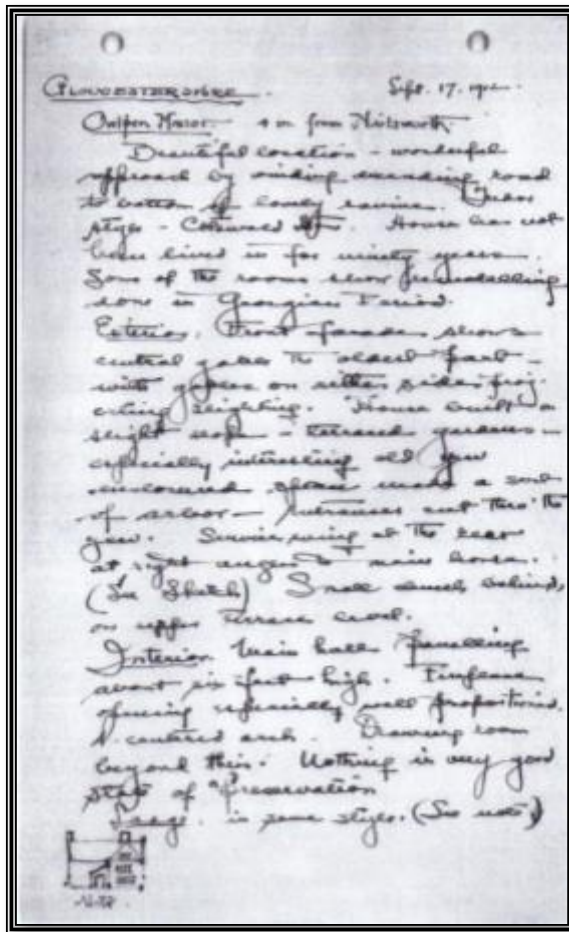 GLOUCESTERSHIRE. Sept. 17. 1912.
Owlpen Manor. 4 m from Nailsworth
Beautiful location - wonderful
approach by winding road
to bottom of lovely ravine.
style - Cotswold House has not
been lived in for ninety years.
Some of the rooms show remodelling
done in Georgian Period.
Exterior. Front facade shows
central gable the oldest part -
with gables on either side proj-
ecting slightly. House built on
slight slope - terraced gardens -
especially interesting old yew
enclosure make a sort
of arbor - entrances cut thro' the
yew. Service wing at the rear
at right angles to main house.
(See Sketch) Small church behind,
on upper terrace level.
Interior Main hall panelling
about six feet high. Fireplace
opening especially well proportioned.
4-centered arch. Drawing room
beyond this. Nothing in very good
state of preservation
in same style. (See note)